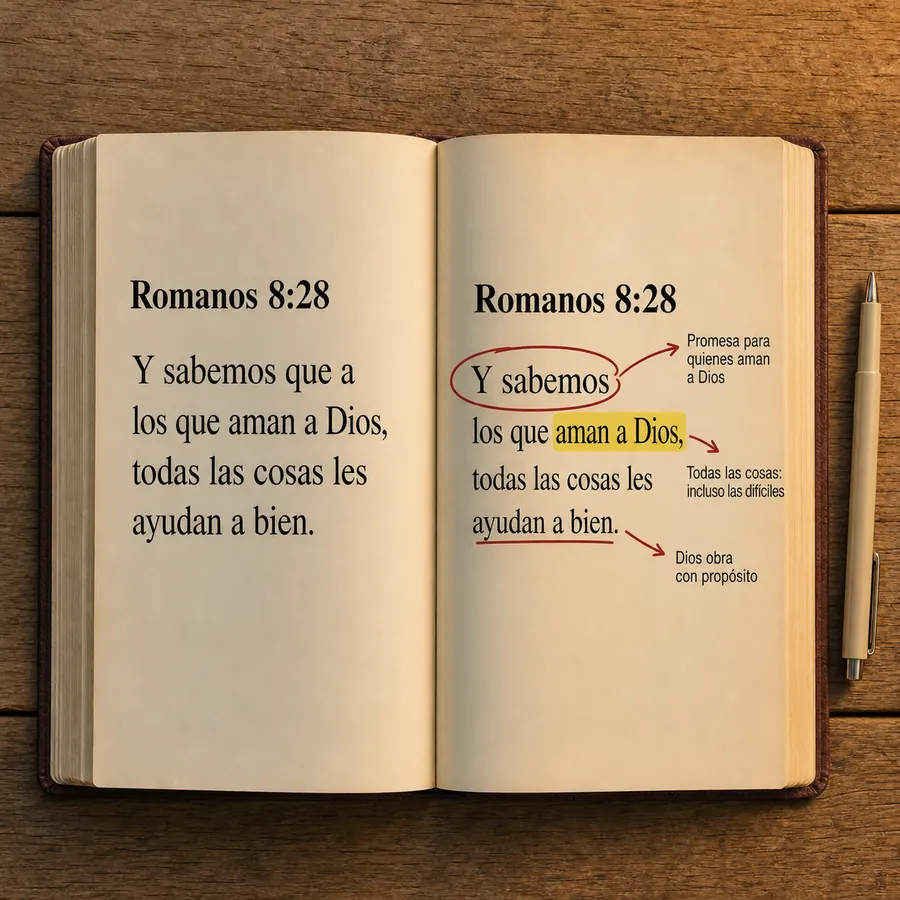 Romanos 8:28
Y sabemos que a
los que aman a Dios,
todas las cosas les
ayudan a bien.
Romanos 8:28
Y sabemos
los que aman a Dios,
todas las cosas les
ayudan a bien.
Promesa para
quienes aman
a Dios
Todas las cosas:
incluso las difíciles
Dios obra
con propósito